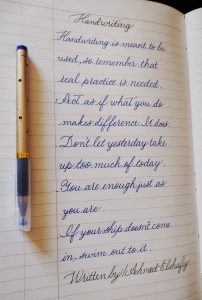 Handwriting
Handwriting is meant to be
used, so remember that
real practice is needed.
Act as if what you do
makes difference. It does.
Don't let yesterday take
up too much of today.
You are enough just as
you are.
If your ship doesn't come
in, swim out to it.
Written by: